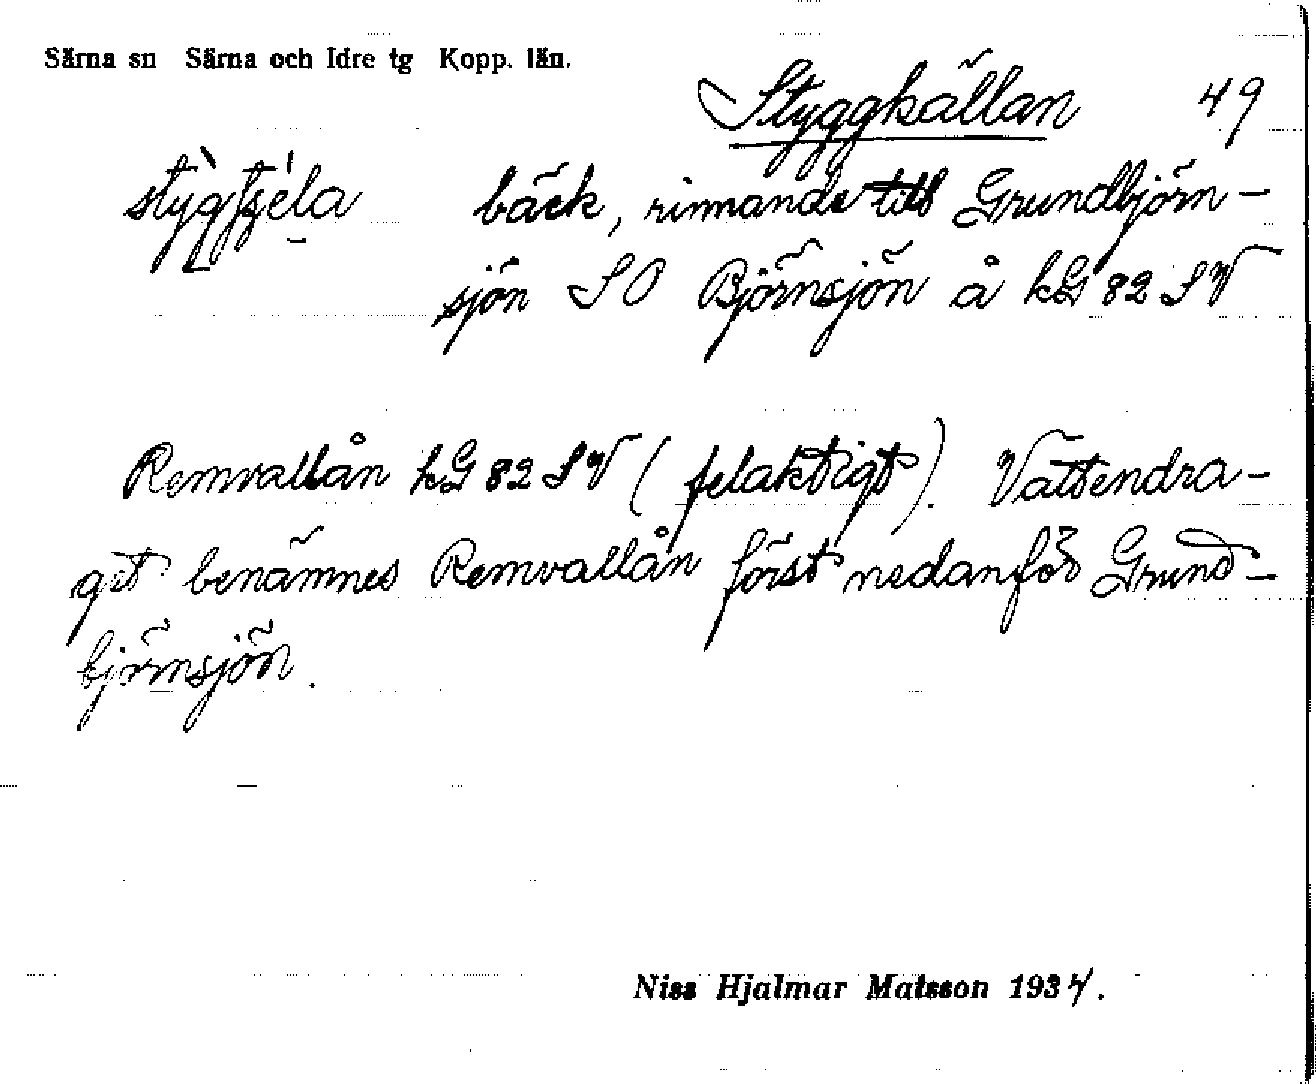 Särna sn Särna och Idre tg Kopp. län.
Styggkällan 49
bäck, rinnande till Grundbjörn-
sjön SO Björnsjön å kG 82 SV
Remvallån kG 82 SV (felaktigt). Vattendra-
get benämnes Remvallån först nedanför Grund-
björnsjön.
Niss Hjalmar Matsson 1934.